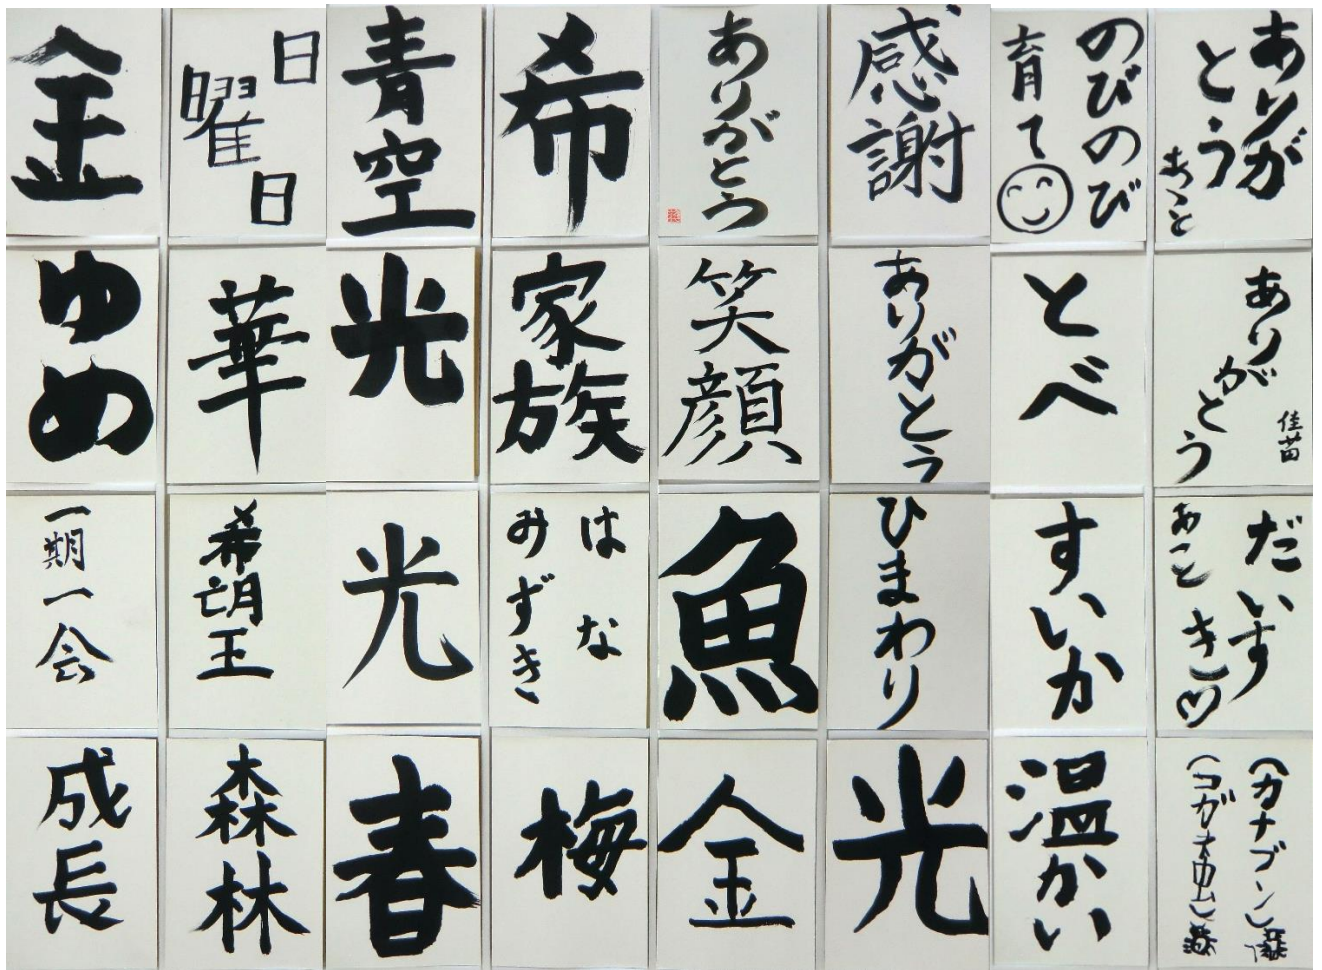 金
日
曜
日
青空
希
ありがとう
感謝
のびのび
育て
ありが
とう
あこと
ゆめ
華
光
家族
笑顔
ありがとう
とべ
ありがとう
佳苗
一期一会
希望王
光
はな
みずき
魚
ひまわり
すいか
だいす
き♡
あこと
成長
森林
春
梅
金
光
温かい
(カナブン)
(コガネムシ)